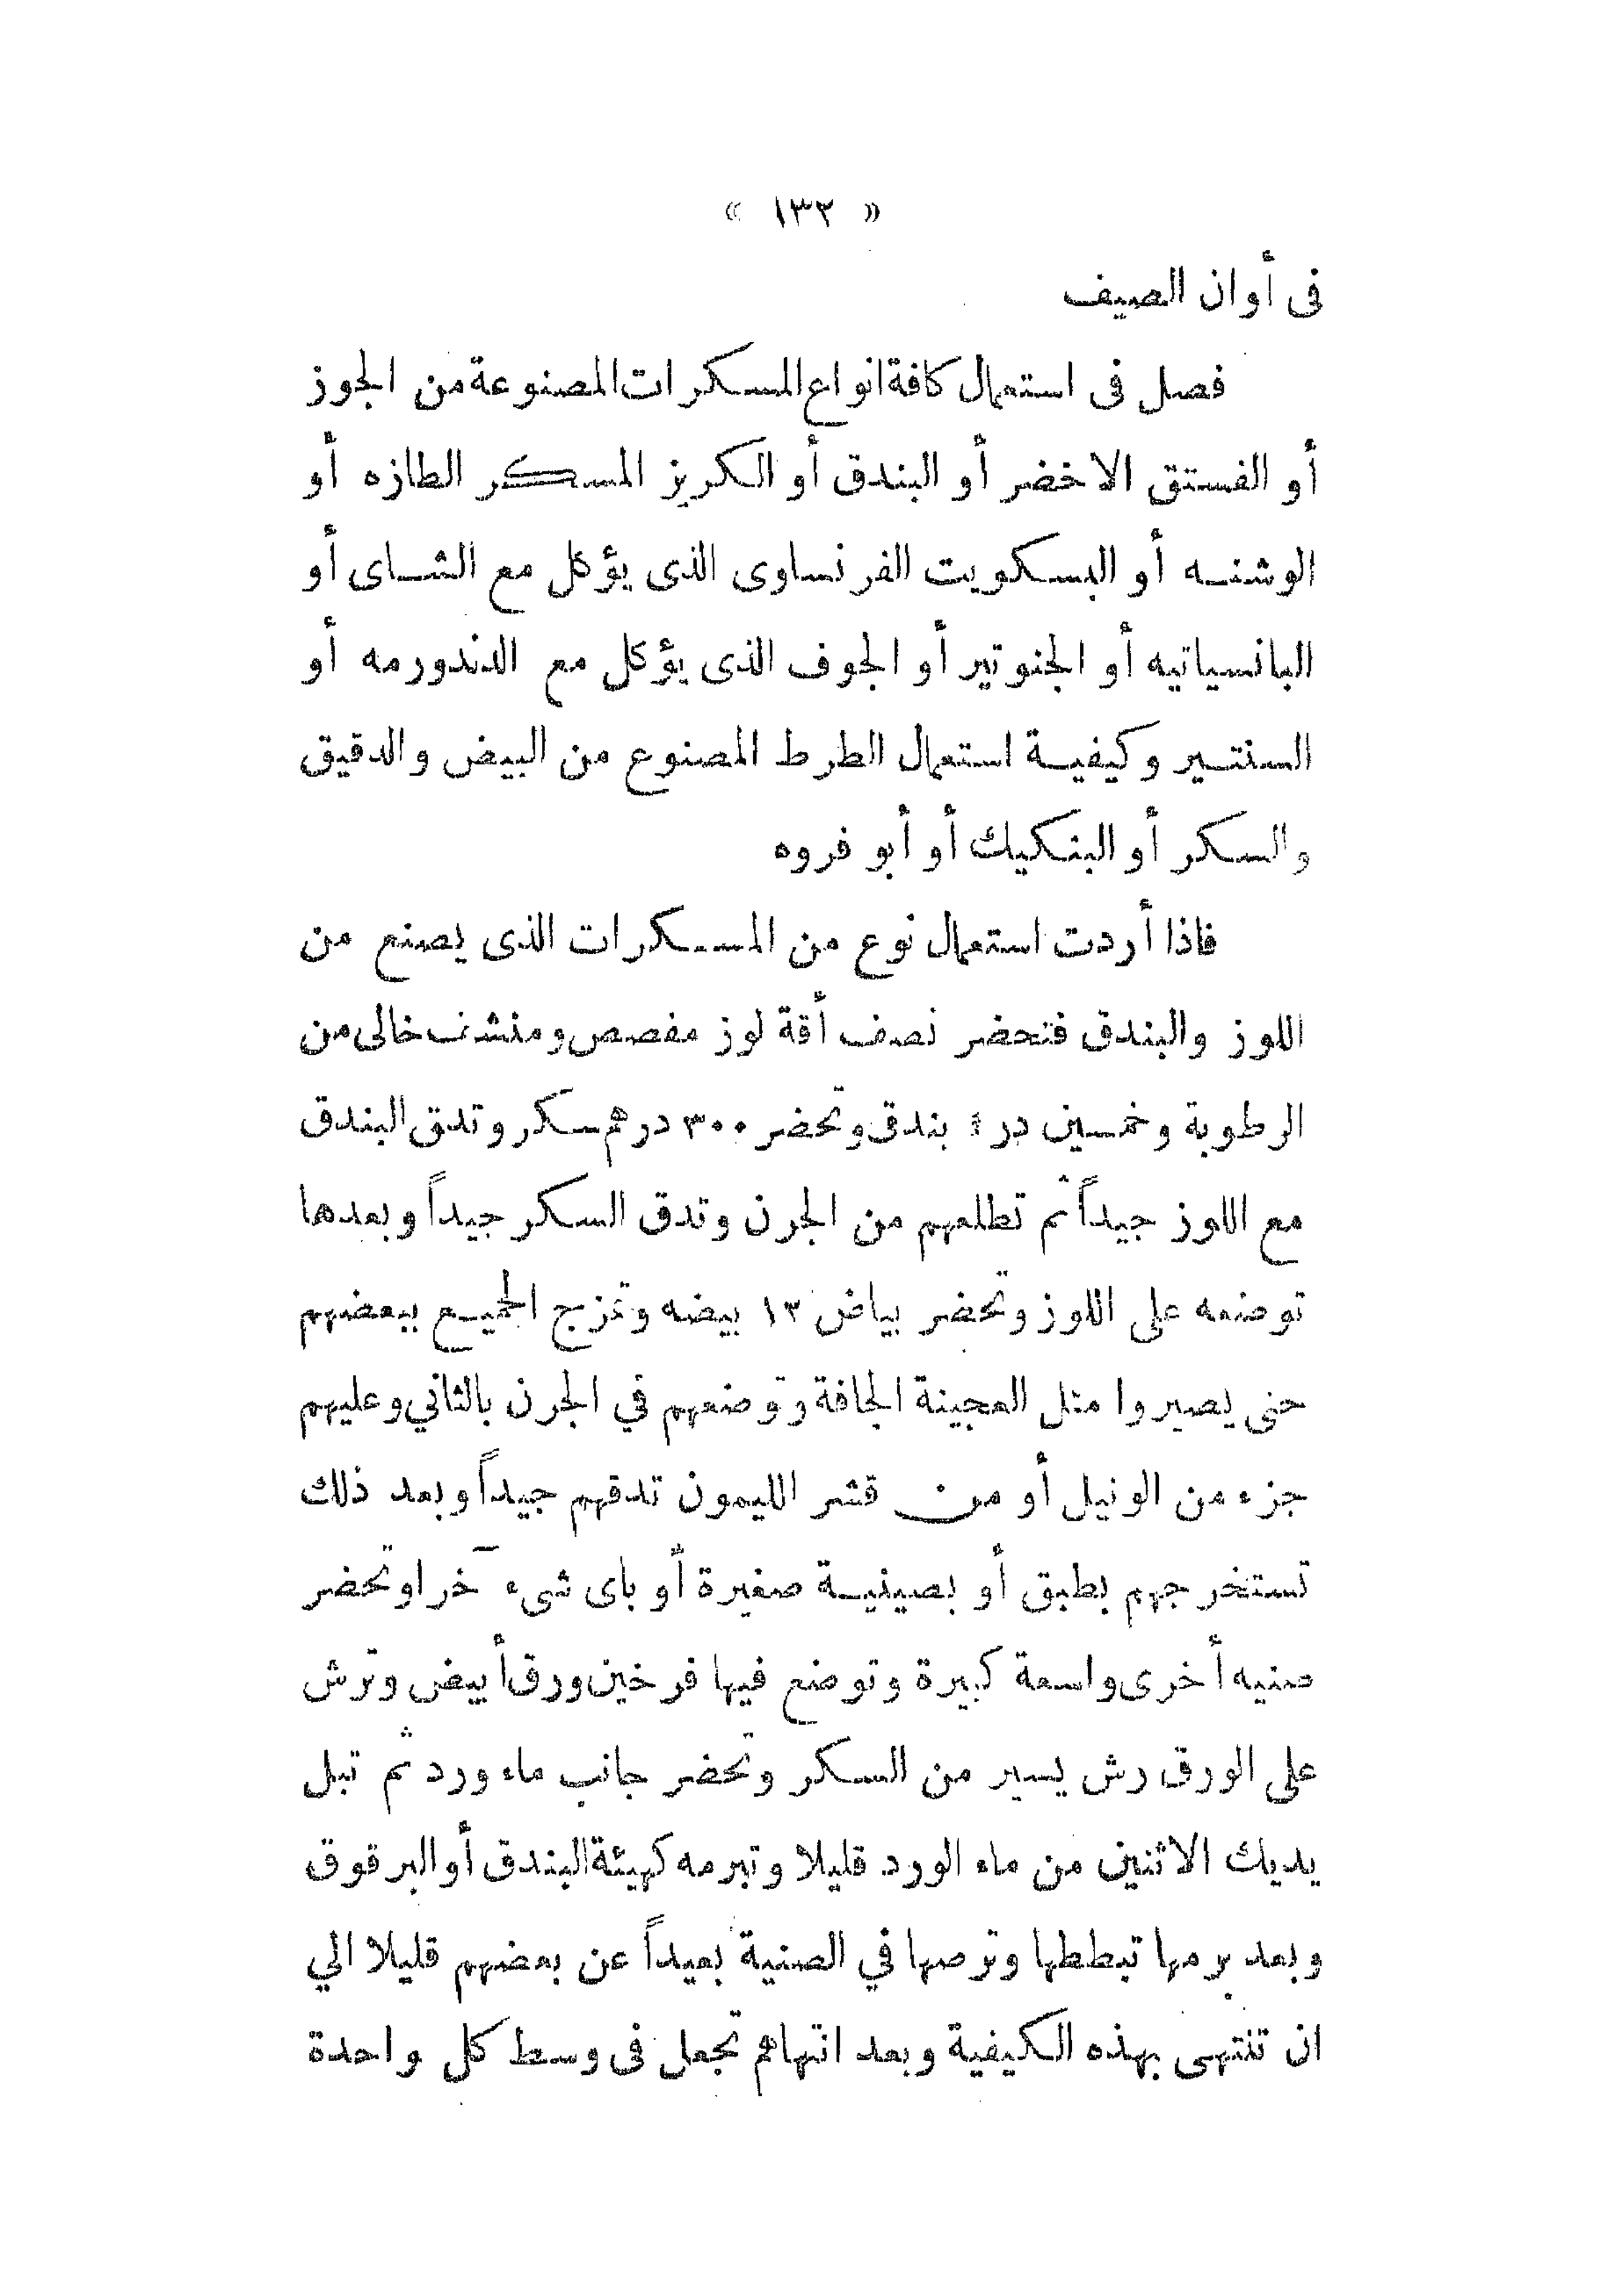 « ١٣٢ »
فى أوان الصيف
فصل فى استعمال كافة انواع المسكرات المصنوعة من الجوز
أو الفستق الاخضر أو البندق أو الكريز المسكر الطازه أو
الوشنه أو البسكويت الفرنساوى الذى يؤكل مع الشاى أو
البانسياتيه أو الجنوتير أو الجوف الذى يؤكل مع الدندورمه أو
السنتير وكيفية استعمال الطرط المصنوع من البيض والدقيق
والسكر أو البنكيك أو أبو فروه
فاذا أردت استعمال نوع من المسكرات الذى يصنع من
اللوز والبندق فتحضر نصف أقة لوز مفصص ومنشف خالى من
الرطوبة وخمسين بندق وتحضر ٣٠٠ درهم سكر وتدق البندق
مع اللوز جيداً ثم تطلعهم من الجرن وتدق السكر جيداً وبعدها
توضعه على اللوز وتحضر بياض ١٣ بيضه وتمزج الجميع ببعضهم
حتى يصيروا مثل العجينة الجافة وتوضعهم في الجرن بالثاني وعليهم
جزء من الونيل أو من قشر الليمون تدقهم جيداً وبعد ذلك
تستخرجهم بطبق أو بصينية صغيرة أو باى شىء آخر اوتحضر
صنيه أخرى واسعة كبيرة وتوضع فيها فرخين ورق أبيض وترش
على الورق رش يسير من السكر وتحضر جانب ماء ورد ثم تبل
يديك الاثنين من ماء الورد قليلا وتبرمه كهيئة البندق أو البرقوق
وبعد برمها تبططها وترصها في الصنية بعيداً عن بعضهم قليلا الي
ان تنتهى بهذه الكيفية وبعد انتهاهم تجعل فى وسط كل واحدة